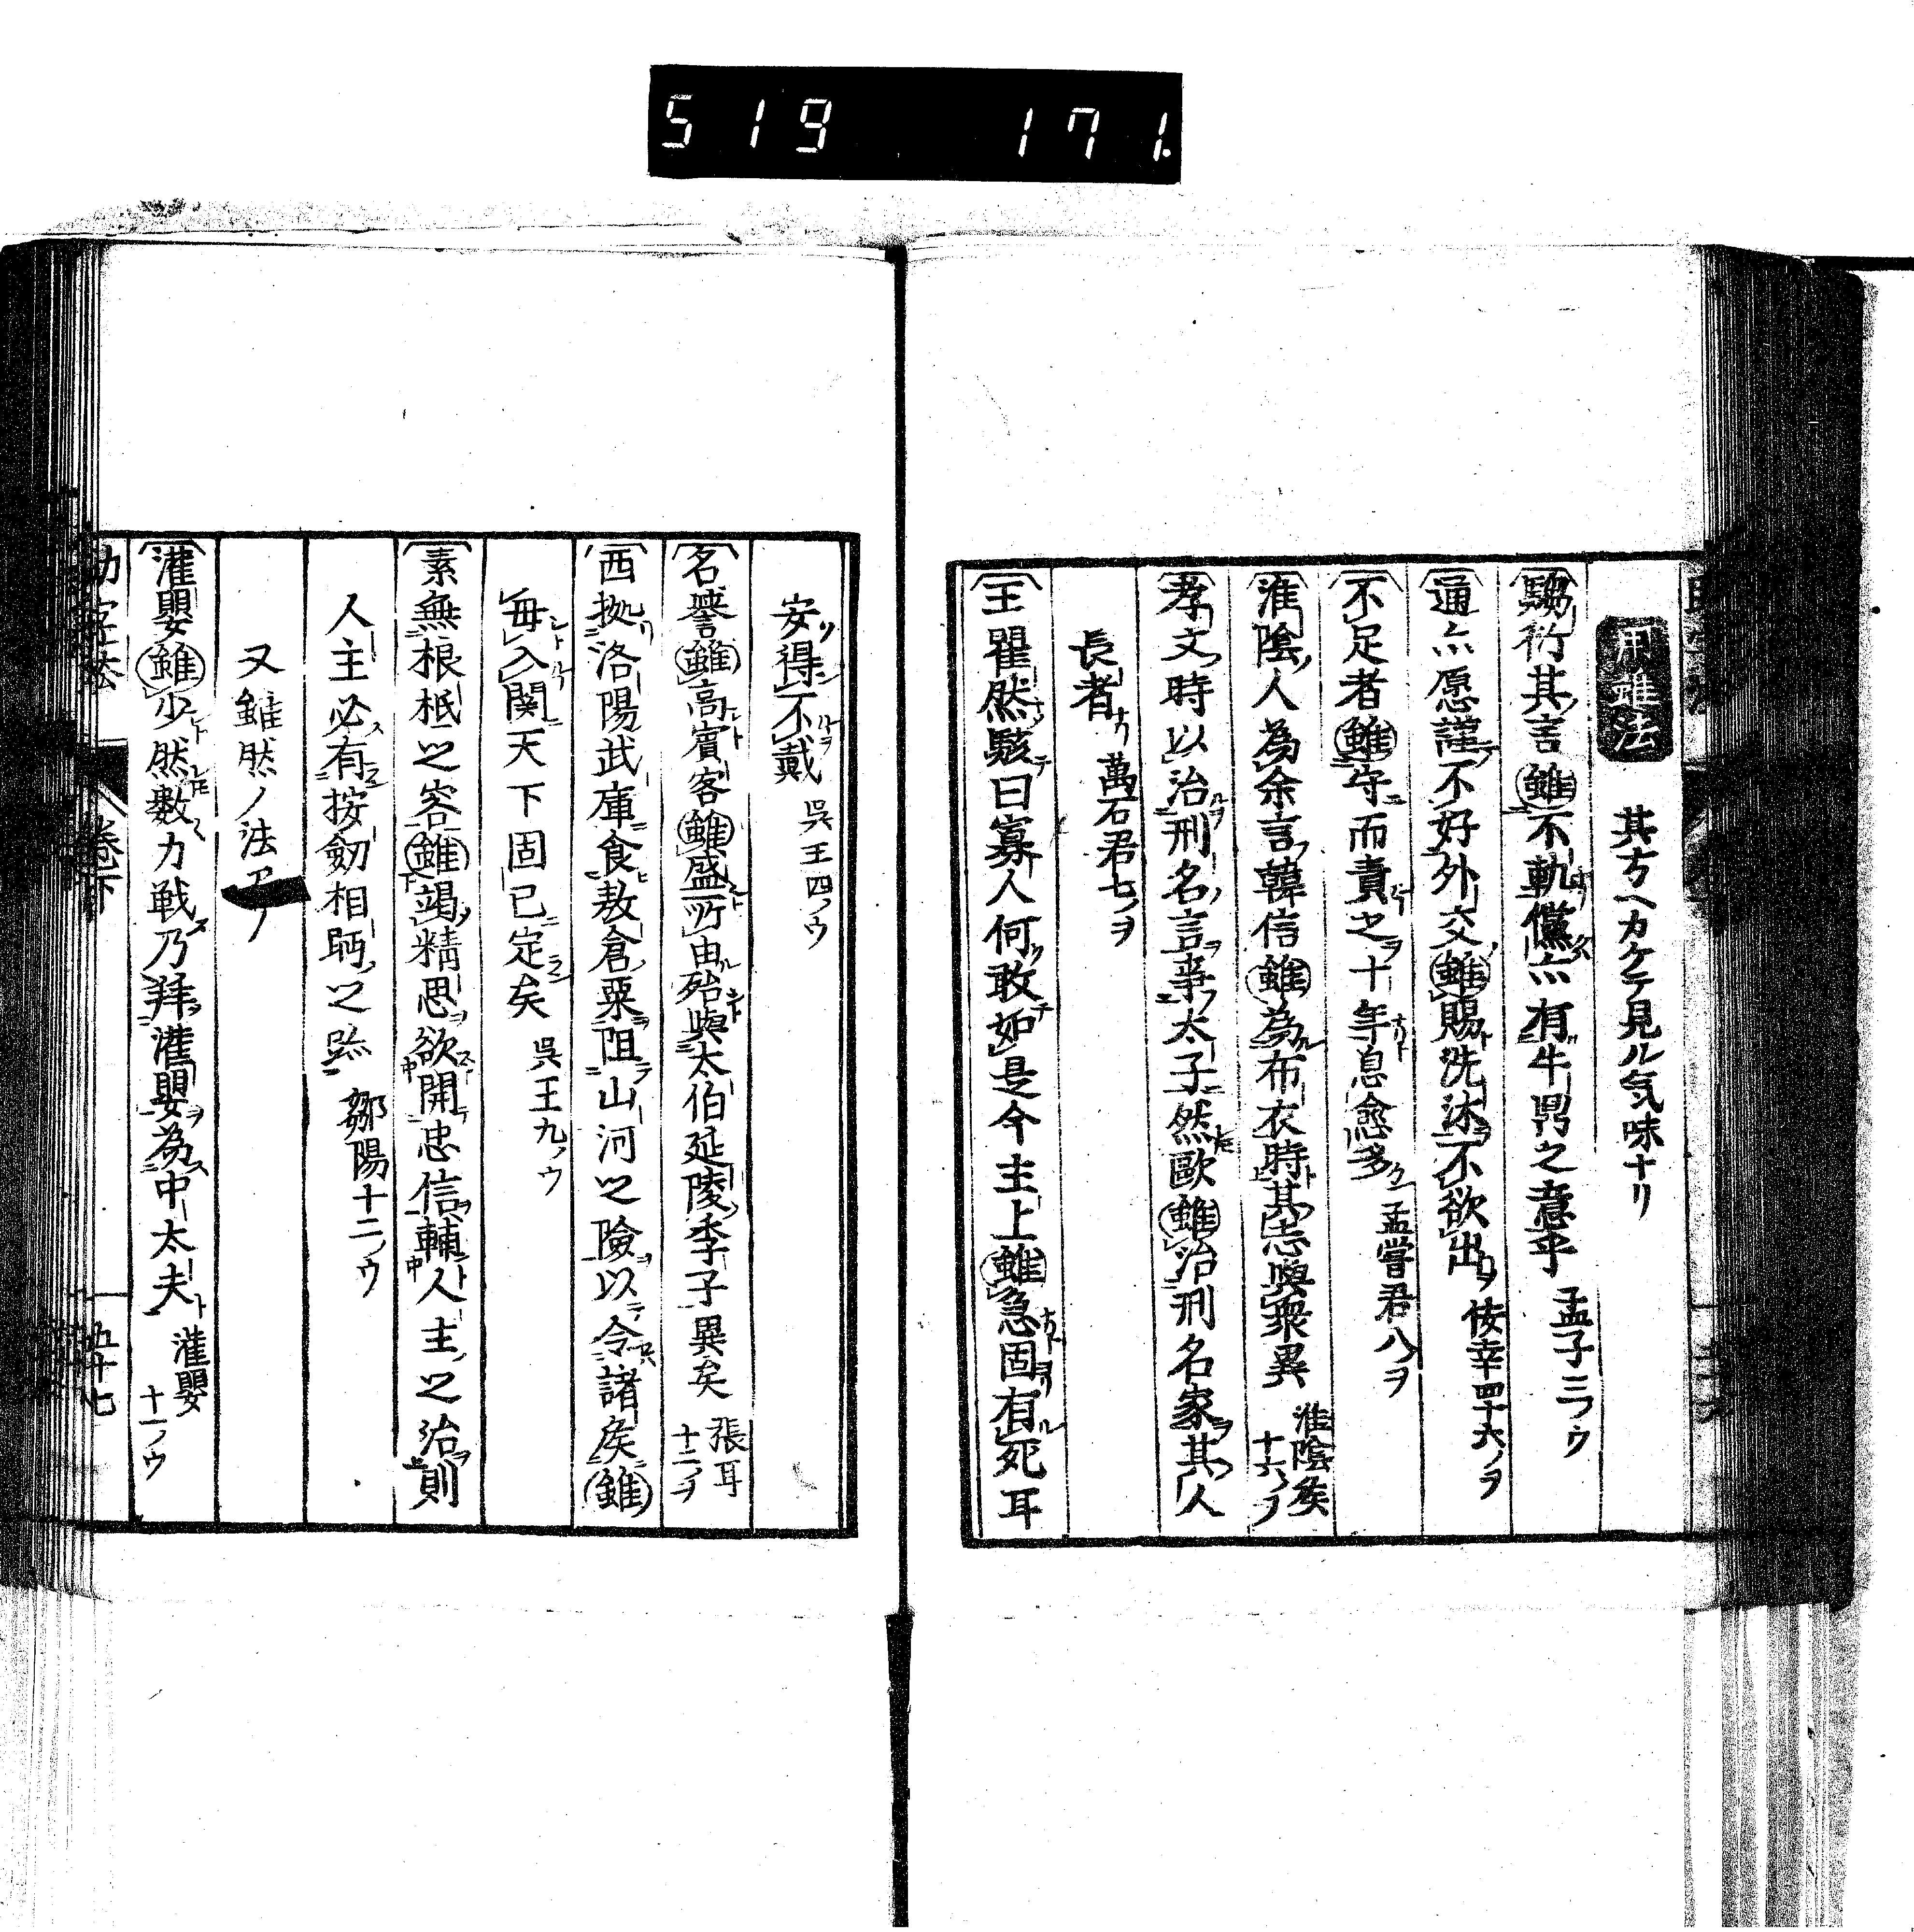 519 171
用雖法 其方ヘカケテ見ル気味ナリ
騶衍其言雖不軌儻亦有牛鼎之意乎 孟子三ノウ
通亦愿謹不好外交雖賜洗沐不欲出 佞幸四十六ノヲ
不足者雖守而責之十年息愈多 孟嘗君八ヲ
淮陰人為余言韓信雖為布衣時其志與衆異 淮陰矦十六ノヲ
孝文時以治刑名言事太子然歐雖治刑名家其人
長者 萬石君七ノヲ
王瞿然駭曰寡人何敢如是今主上雖急固有死耳
安得不戴 呉王四ノウ
名譽雖高賓客雖盛所由殆與太伯延陵季子異矣 張耳十二ノヲ
西拠洛陽武庫食敖倉粟阻山河之險以令諸矦雖
毎入関天下固已定矣 呉王九ノウ
素無根柢之容雖竭精思欲開忠信輔人主之治則
人主必有按劒相眄之跡 鄒陽十二ノウ
又雖然ノ法
灌嬰雖少然數力戦乃拝灌嬰為中太夫 灌嬰十一ノウ
助字法 巻下 五十七